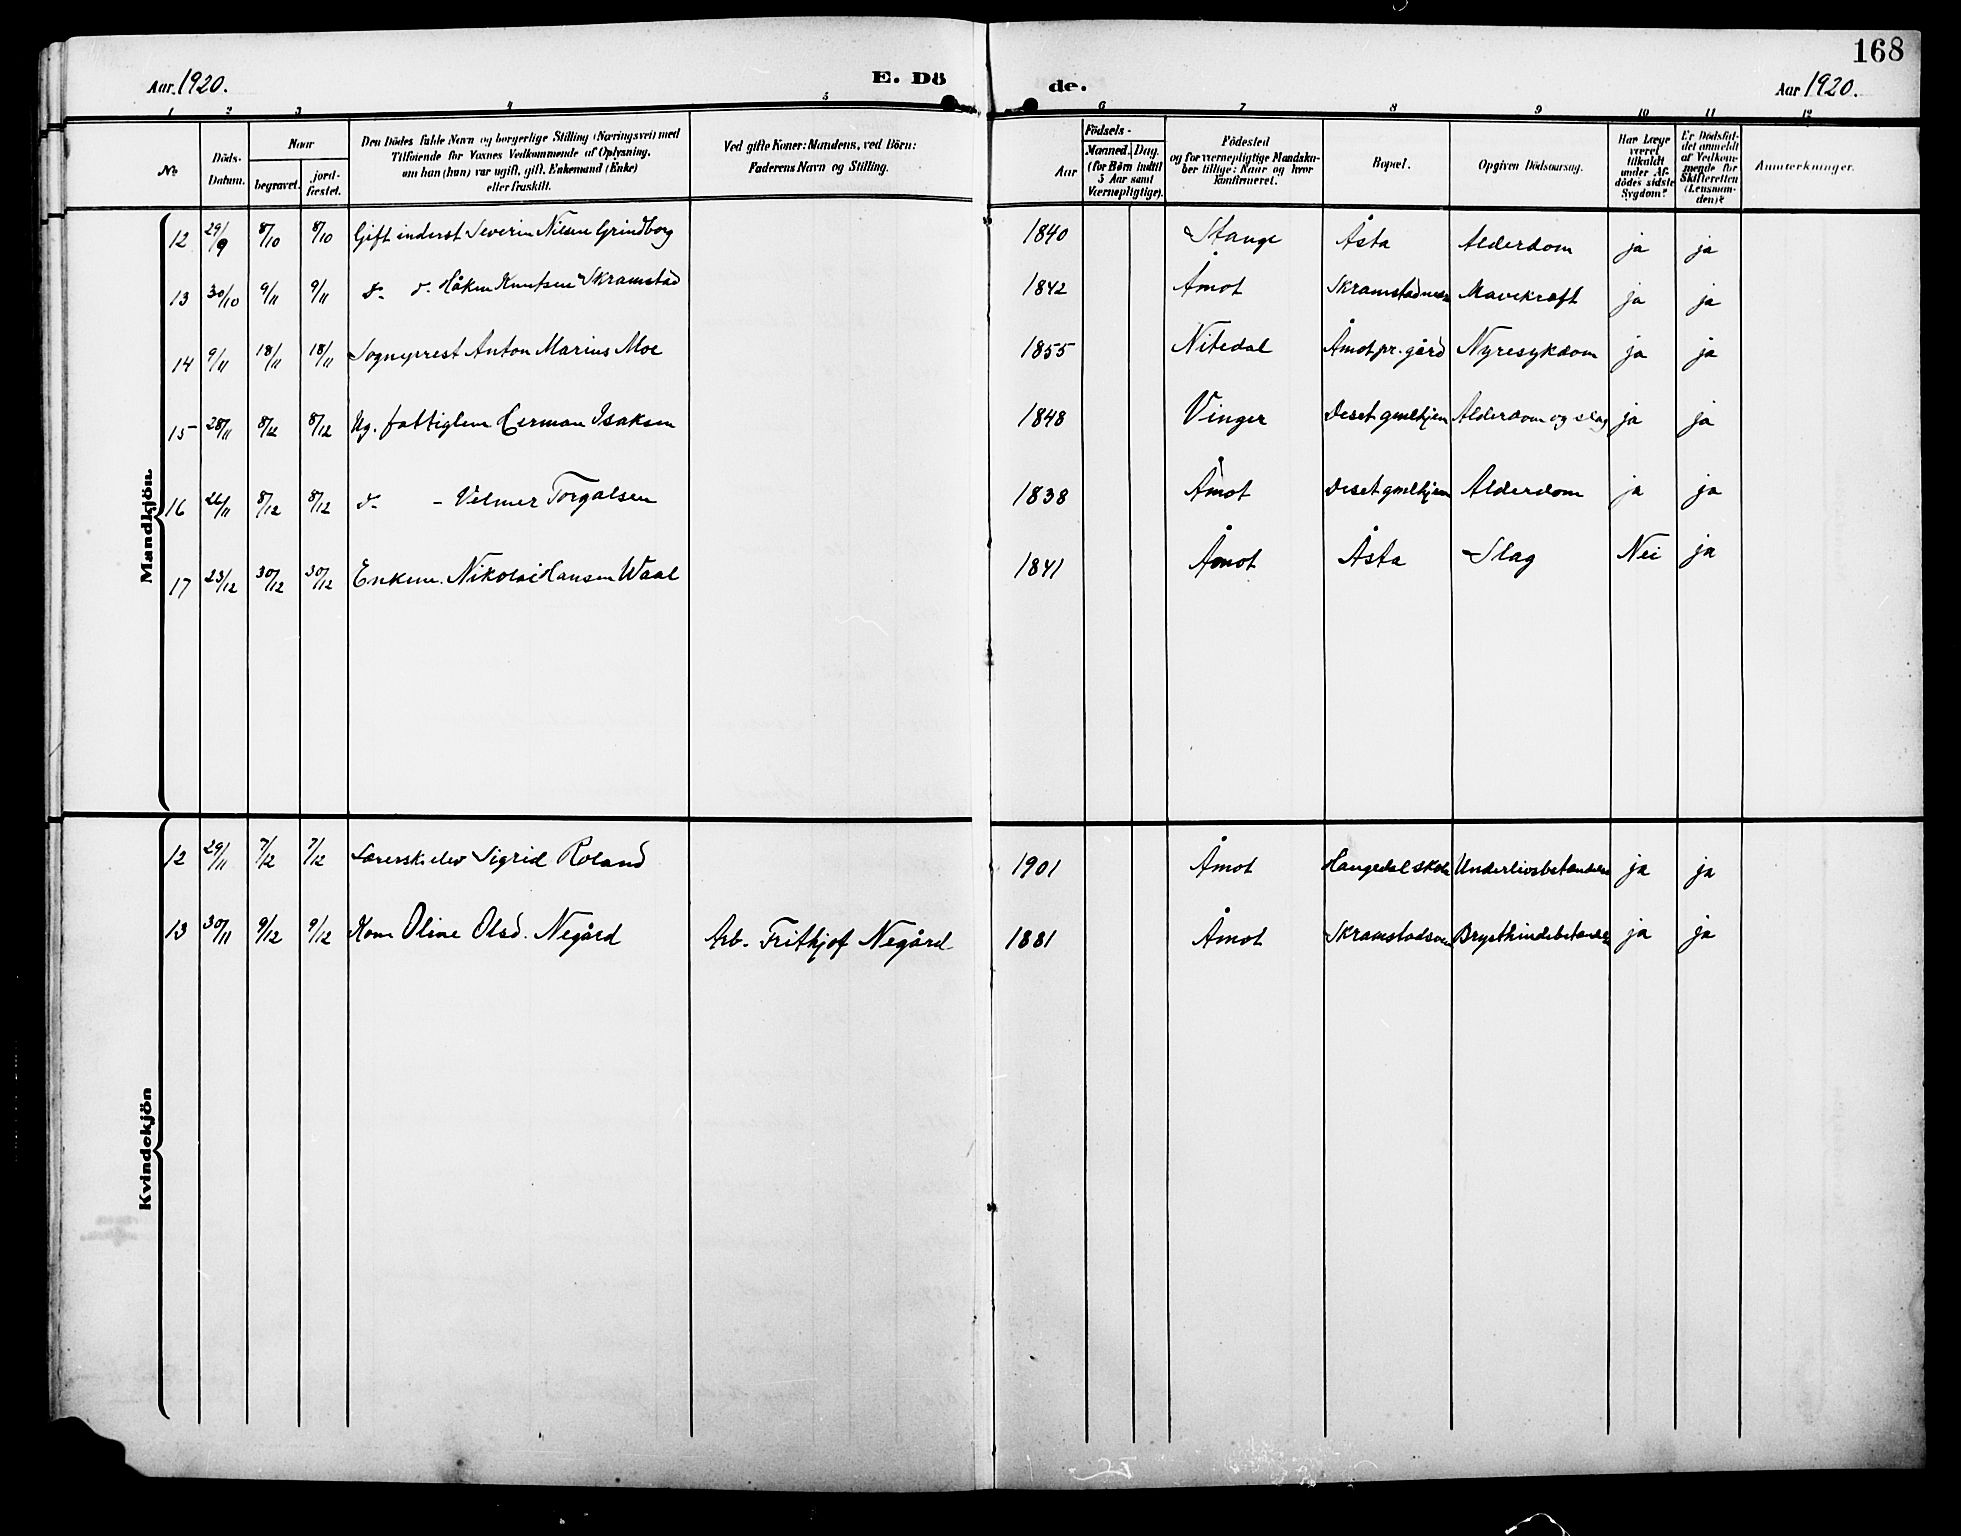 168
Aar 1920. E. Dö de. Aar 1920.
1 2 3 4 5 6 7 8 9 10 11 12
No.
Döds-
Datum.
Naar
begravet.
jord-
fæstet.
Den Dödes fulde Navn og borgerlige Stilling (Næringsvei) med
Tilföiende for Voxnes Vedkommende af Oplysning,
om han (hun) var ugift, gift, Enkemand (Enke)
eller fraskilt.
Ved gifte Koner: Mandens, ved Börn:
Faderens Navn og Stilling.
Födsels-
Aar
Maaned. Dag.
(for Börn indtil
5 Aar samt
Værnepligtige).
Födested
og for værnepligtige Mandska-
ber tillige: Naar og hvor
konfirmeret.
Bopæl.
Opgiven Dödsaarsag.
Har Læge
været
tilkaldt
under Af-
dödes sidste
Sygdom?
Er Dödsfal-
det anmeldt
af Vedkom-
mende for
Skifteretten
(Lensman-
den)?
Anmærkninger.
Mandkjön.
12 29/9 8/10 8/10 Gift inderst Severin Nilsen Grindborg 1840 Stange Åsta Alderdom ja ja
13 30/10 9/11 9/11 d. d. Håken Knutsen Skramstad 1842 Åmot Mavekræft ja ja
14 9/11 18/11 18/11 Sogneprest Anton Marius Moe 1855 Nitedal Åmot pr.gård Nyresykdom ja ja
15 28/11 8/12 8/12 Ug. fattiglem Herman Isaksen 1848 Vinger Deset gmlhjem Alderdom og slag ja ja
16 26/11 8/12 8/12 d. - Velmer Torgalsen 1838 Åmot Deset gmlhjem Alderdom ja ja
17 23/12 30/12 30/12 Enkem. Nikolai Hansen Waal 1841 Åmot Åsta Slag Nei ja
Kvindekjön
12 29/11 7/12 7/12 Lærersk.elev Sigrid Roland 1901 Åmot Haugedal skole Underlivsbetændelse ja ja
13 30/11 9/12 9/12 Kone Oline Olsd. Negård Arb. Frithjof Negård 1881 Åmot Brysthindebetændelse ja ja